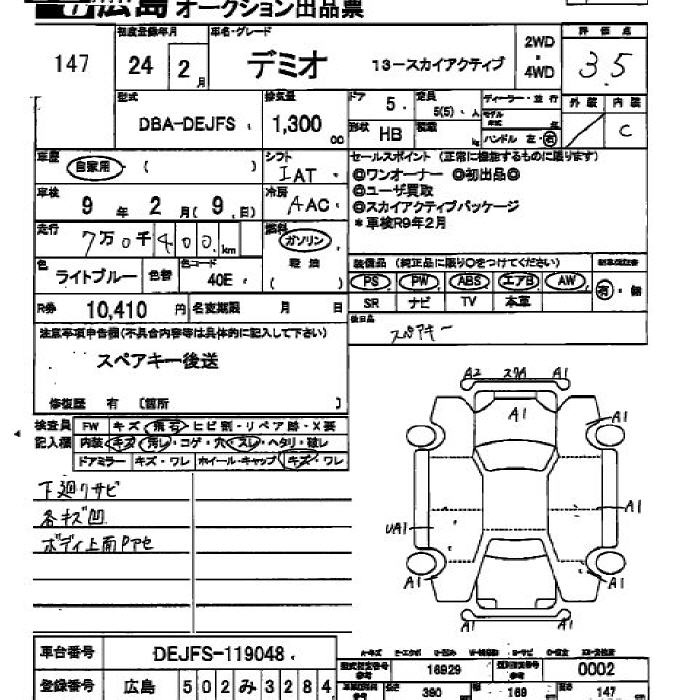 広島 オークション出品票
147
初度登録年月
24 2月
車名・グレード
デミオ 13-スカイアクティブ
2WD
・
4WD
評価点
3.5
型式
DBA-DEJFS
排気量
1,300
cc
ドア 5
定員 5(5) 人
ディーラー・並行
形状 HB
積載 kg
モデル
年式
ハンドル 左・右
外装 内装
C
車歴 自家用 ( )
シフト
IAT
セールスポイント(正常に機能するものに限ります)
◎ワンオーナー ◎初出品◎
◎ユーザ買取
◎スカイアクティブパッケージ
*車検R9年2月
車検
9 年 2 月( 9 日)
冷房
AAC
走行
7万0千400km
燃料
ガソリン
軽油
( )
色 ライトブルー 色替
色コード
40E
装備品(純正品に限り○をつけてください)
新車保証書
PS PW ABS エアB AW
有・無
SR ナビ TV 本革
R券 10,410 円 名変期限 月 日
後日品
スペアキー
注意事項申告欄(不具合内容等は具体的に記入して下さい)
スペアキー後送
修復歴 有 〔箇所 〕
検査員
記入欄
FW キズ・飛石・ヒビ割・リペア跡・X要
内装 キズ・汚レ・コゲ・穴・スレ・ヘタリ・破レ
ドアミラー キズ・ワレ ホイール・キャップ キズ・ワレ
下廻りサビ
各キズ凹
ボディ上面Pアセ
A2 スクA A1
A1
A1
A1
UA1
A1 A1
A1
車台番号 DEJFS-119048
登録番号 広島 502み3284
A-キズ E-エクボ U-凹み
型式指定番号
参考
16929
類別区分番号
参考
0002
長さ 390 幅 169 高さ 147